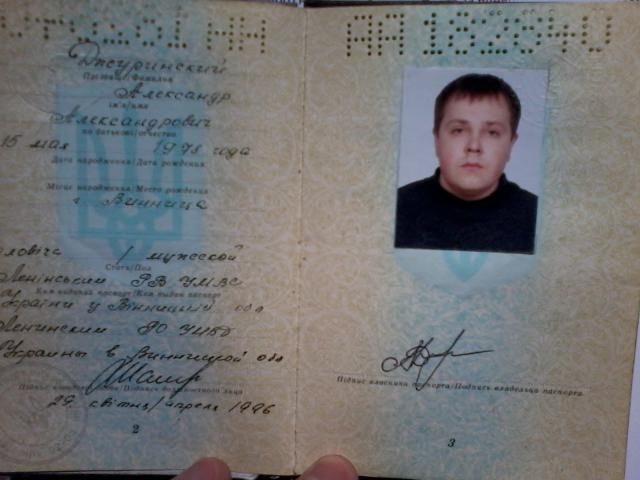 Джуринский
Прізвище/Фамилия
Александр
ім'я/имя
Александрович
по батькові/отчество
15 мая 1978 года
Дата народження/Дата рождения
Місце народження/Место рождения
г. Винница
ловіча / мужской
Стать/Пол
Ленінським РВ УМВС
Ким виданий паспорт/Кем выдан паспорт
України у Вінницькій обл
Ленинским РО УМВД
Украины в Винницкой обл
Підпис посадової особи/Подпись должностного лица
29 квітня/апреля 1996
2
АА 182840
Підпис власника паспорта/Подпись владельца паспорта
3